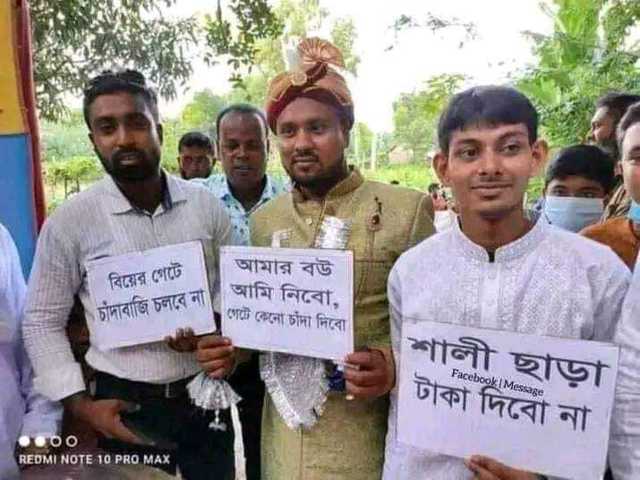 বিয়ের গেটে
চাঁদাবাজি চলবে না
আমার বউ
আমি নিবো,
গেটে কেনো চাঁদা দিবো
শালী ছাড়া
Facebook | Message
টাকা দিবো না
REDMI NOTE 10 PRO MAX